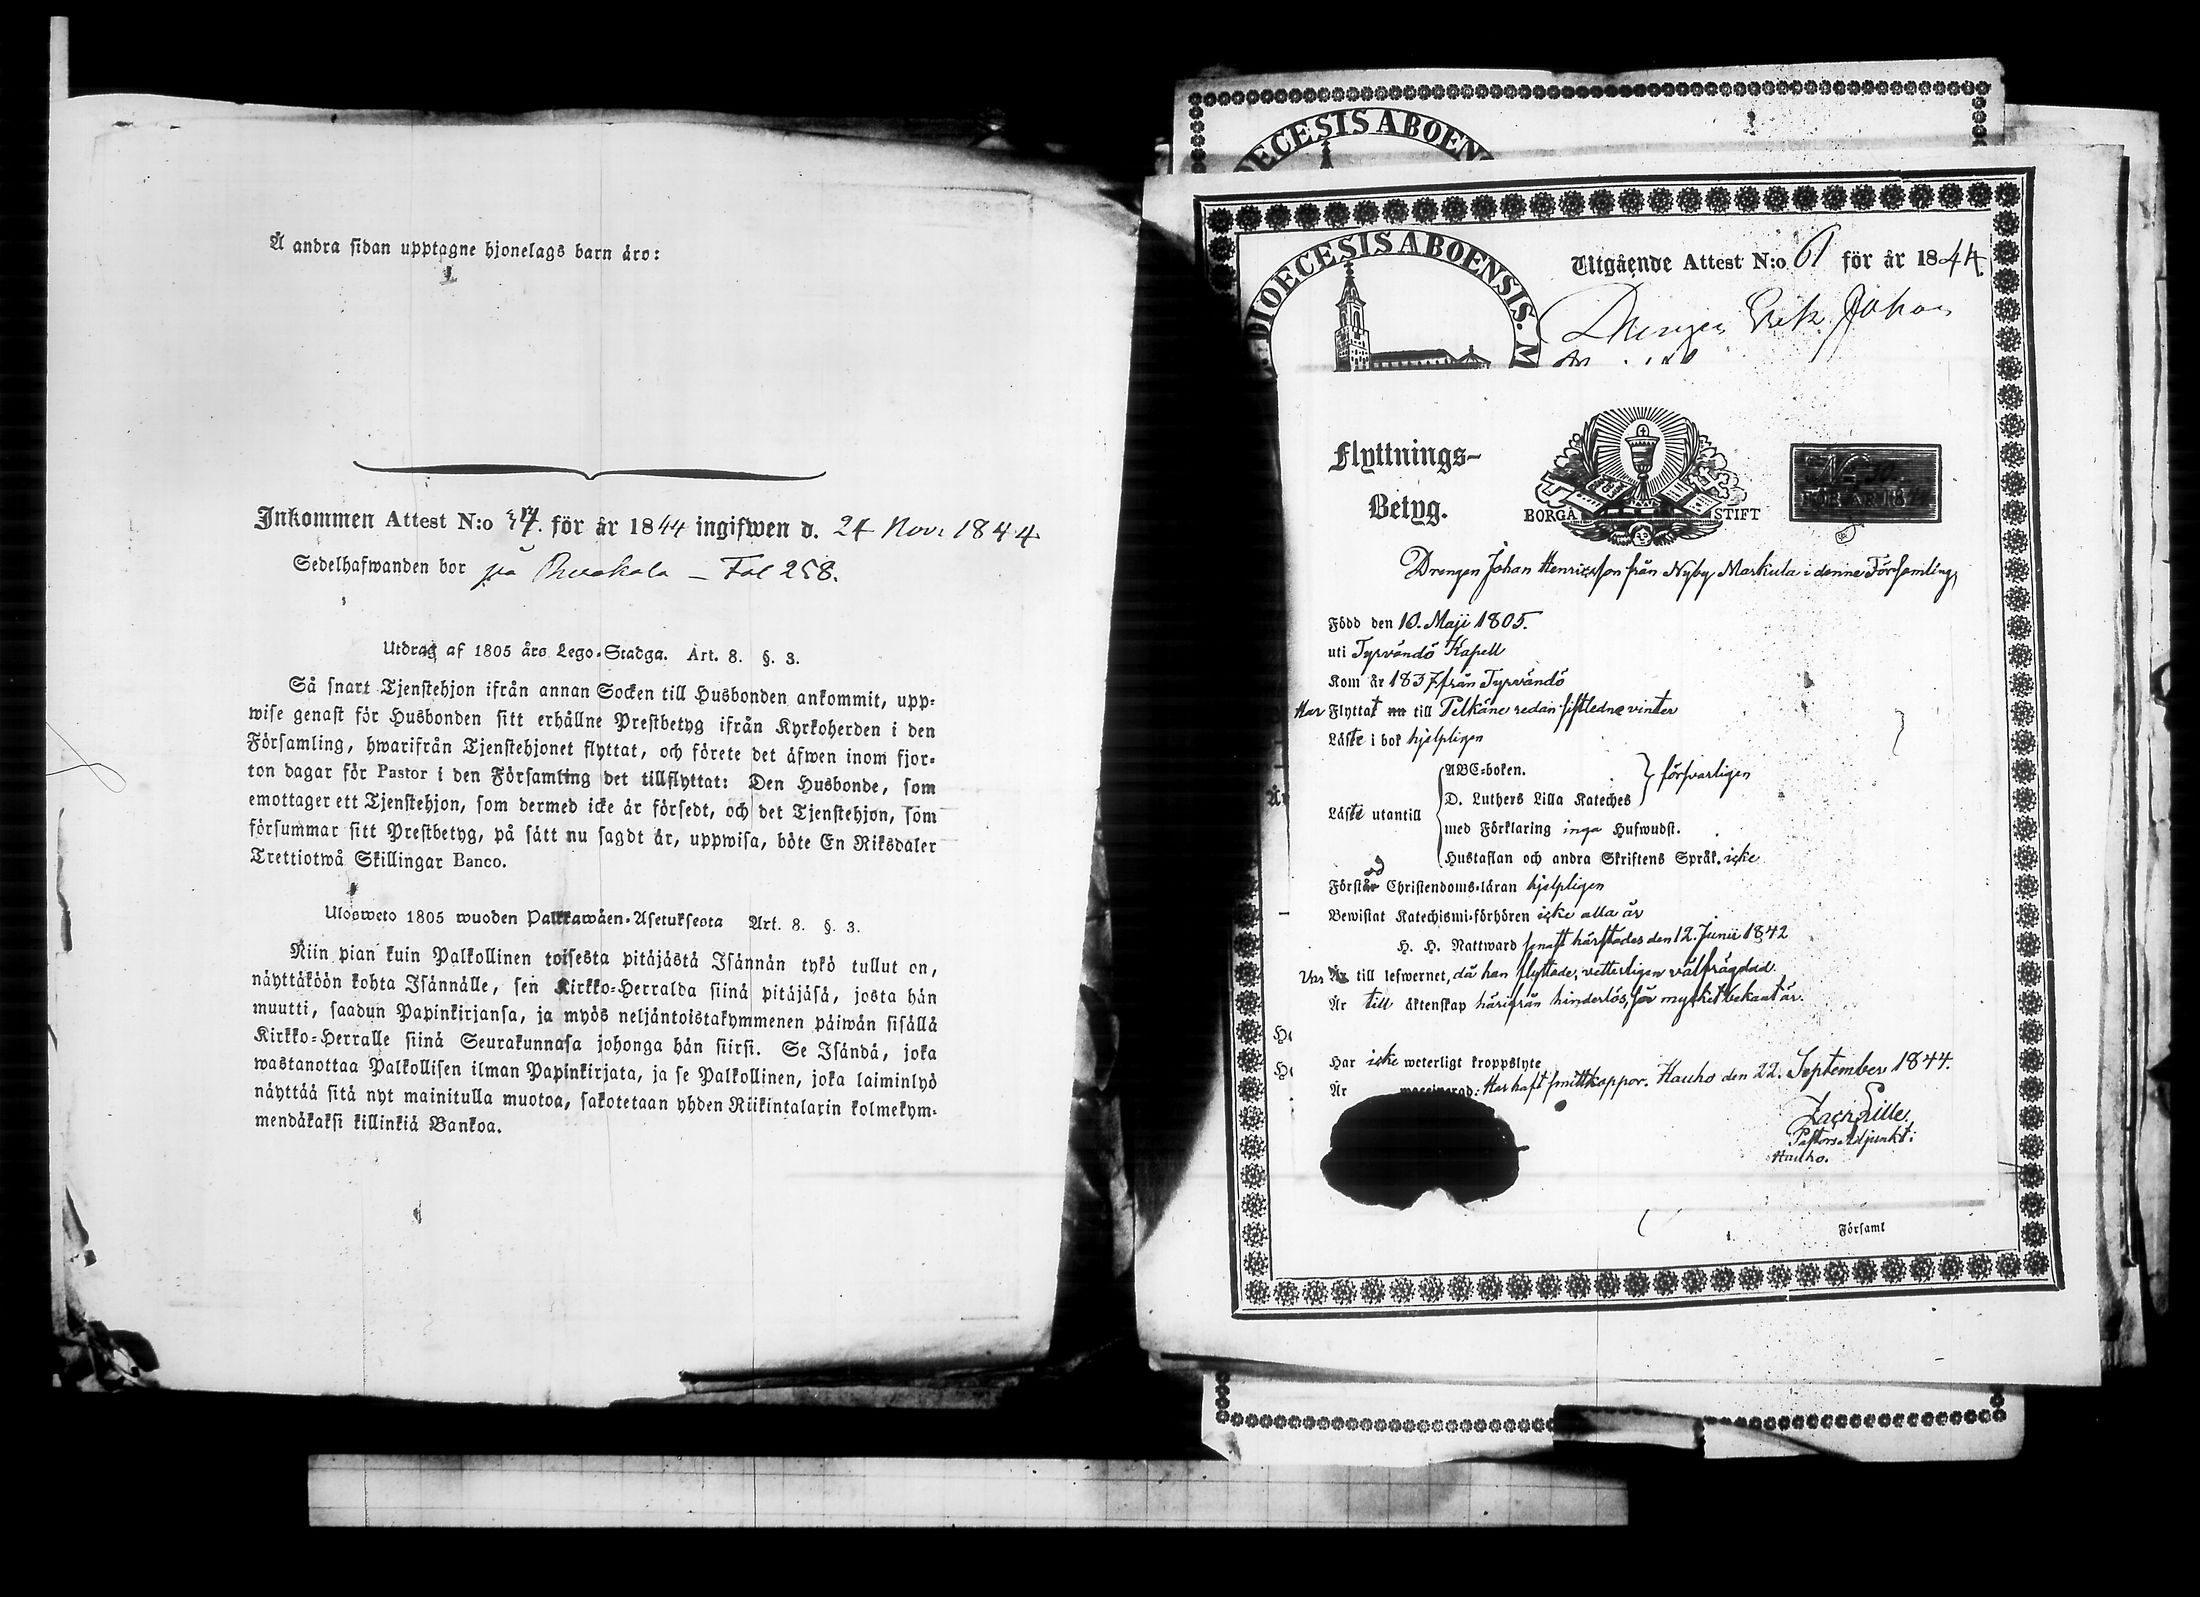 Å andra sidan upptagne hjonelags barn äro:
Inkommen Attest N:o för år 1844 ingifwen d. 24 Nov. 1844
Sedelhafwanden bor på — Fol 258.
Utdrag af 1805 års Lego-Stadga. Art. 8. §. 3.
Så snart Tjenstehjon ifrån annan Socken till Husbonden ankommit, upp-
wise genast för Husbonden sitt erhållne Prestbetyg ifrån Kyrkoherden i den
Församling, hwarifrån Tjenstehjonet flyttat, och förete det äfwen inom fjor-
ton dagar för Pastor i den Församling det tillflyttat: Den Husbonde, som
emottager ett Tjenstehjon, som dermed icke är försedt, och det Tjenstehjon, som
försummar sitt Prestbetyg, på sätt nu sagdt är, uppwisa, böte En Riksdaler
Trettiotwå Skillingar Banco.
Ulosweto 1805 wuoden Palkkawäen-Asetuksesta Art. 8. §. 3.
Niin pian kuin Palkollinen toisesta pitäjästä Isännän tykö tullut on,
näyttäköön kohta Isännälle, sen Kirkko-Herralda siinä pitäjäsä, josta hän
muutti, saadun Papinkirjansa, ja myös neljäntoistakymmenen päiwän sisällä
Kirkko-Herralle siinä Seurakunnasa johonga hän siirsi. Se Isändä, joka
wastanottaa Palkollisen ilman Papinkirjata, ja se Palkollinen, joka laiminlyö
näyttää sitä nyt mainitulla muotoa, sakotetaan yhden Riikintalarin kolmekym-
mendäkaksi killinkiä Bankoa.
DIOECESIS ABOEN
DIOECESIS ABOENSIS. M
Utgående Attest N:o 61 för år 1844.
Drengen Erik Johan
Flyttnings-
Betyg.
BORGÅ STIFT
FÖR ÅR 18
Drengen Johan Henricsson från Nyby Markula i denne Församling,
Född den 10. Maji 1805.
uti Tyrvändö Kapell
Kom år 1837 från Tyrvändö
Har Flyttat nu till Pelkäne redan sistledne vinter
Läste i bok hjelpligen
ABC-boken.
D. Luthers Lilla Kateches } försvarligen
Läste utantill
med Förklaring inga Hufwudst.
Hustaflan och andra Skriftens Språk. icke
Förstod Christendoms-läran hjelpligen
Bewistat Katechismi-förhören icke alla år
H. H. Nattward senast härstädes den 12. Junii 1842
Var till lefwernet, då han flyttade, vetterligen välfrägdad.
Är till äktenskap härifrån hinderlös, för mycket bekant är.
Har icke weterligt kroppslyte
Är Har haft smittkoppor. Hauho den 22. September 1844.
Zach Lille
Pastors Adjunkt i
Hauho.
Församl